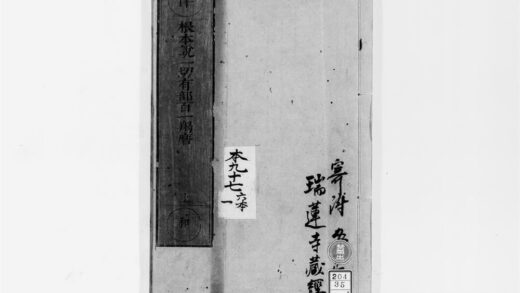 根本説一切有部百一羯磨
本九十七 六本
一
寄附
瑞蓮寺藏經
204
35